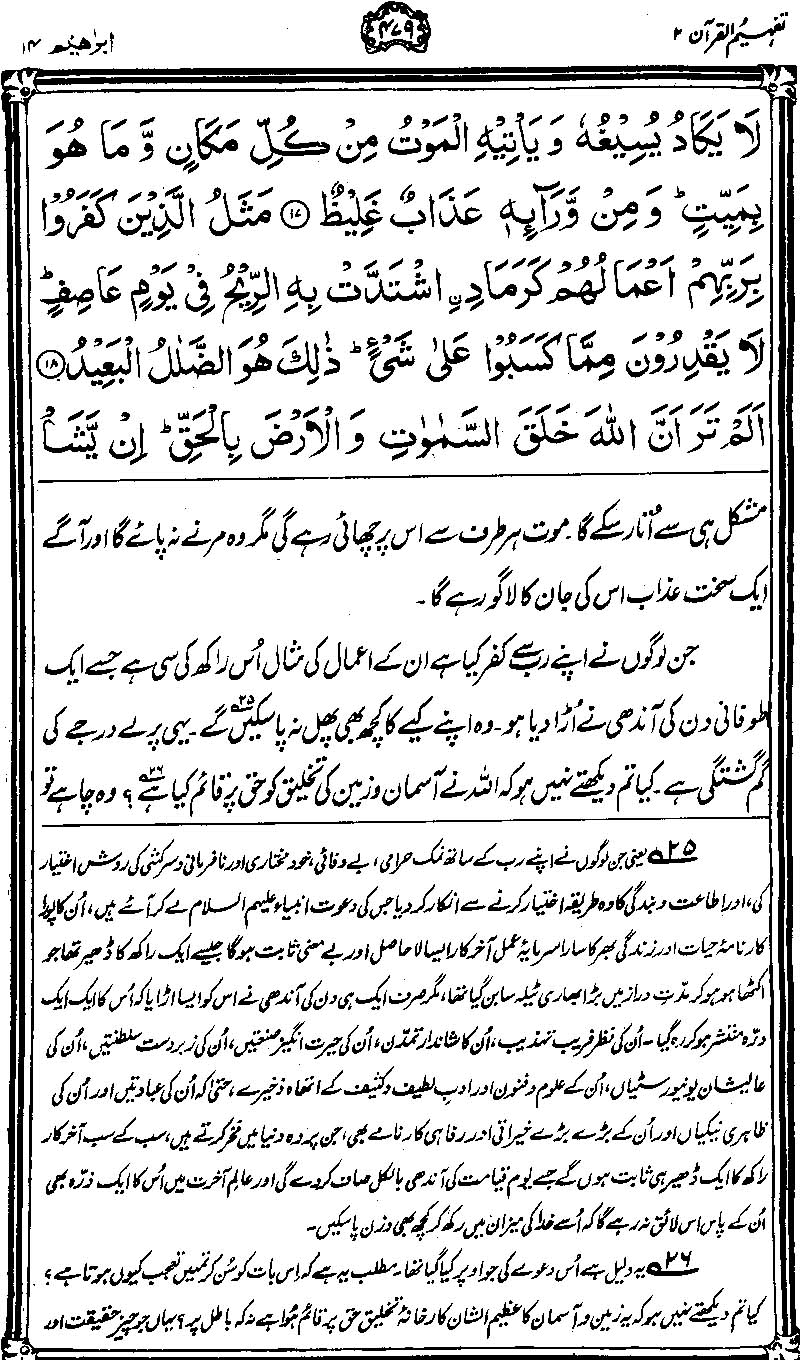 تفہیم القرآن ۲
۴۷۹
ابرٰھیم ۱۴
لَا يَكَادُ يُسِيْغُهٗ وَيَاْتِيْهِ الْمَوْتُ مِنْ كُلِّ مَكَانٍ وَّمَا هُوَ
بِمَيِّتٍ ؕ وَمِنْ وَّرَآئِهٖ عَذَابٌ غَلِيْظٌ ﴿۱۷﴾ مَثَلُ الَّذِيْنَ كَفَرُوْا
بِرَبِّهِمْ اَعْمَالُهُمْ كَرَمَادِ ۨ اشْتَدَّتْ بِهِ الرِّيْحُ فِيْ يَوْمٍ عَاصِفٍ ؕ
لَا يَقْدِرُوْنَ مِمَّا كَسَبُوْا عَلٰى شَيْءٍ ؕ ذٰلِكَ هُوَ الضَّلٰلُ الْبَعِيْدُ ﴿۱۸﴾
اَلَمْ تَرَ اَنَّ اللّٰهَ خَلَقَ السَّمٰوٰتِ وَالْاَرْضَ بِالْحَقِّ ؕ اِنْ يَّشَاْ
مشکل ہی سے اُتار سکے گا۔ موت ہر طرف سے اس پر چھائی رہے گی مگر وہ مرنے نہ پائے گا اور آگے
ایک سخت عذاب اس کی جان کا لاگو رہے گا۔
جن لوگوں نے اپنے رب سے کفر کیا ہے ان کے اعمال کی مثال اُس راکھ کی سی ہے جسے ایک
طوفانی دن کی آندھی نے اُڑا دیا ہو۔ وہ اپنے کیے کا کچھ بھی پھل نہ پا سکیں گے۲۵۔ یہی پرلے درجے کی
گم گشتگی ہے۔ کیا تم دیکھتے نہیں ہو کہ اللہ نے آسمان و زمین کی تخلیق کو حق پر قائم کیا ہے۲۶؟ وہ چاہے تو
۲۵؎ یعنی جن لوگوں نے اپنے رب کے ساتھ نمک حرامی، بے وفائی، خود مختاری اور نافرمانی و سرکشی کی روش اختیار
کی، اور اطاعت و بندگی کا وہ طریقہ اختیار کرنے سے انکار کر دیا جس کی دعوت انبیاء علیہم السلام لے کر آئے ہیں، اُن کا پورا
کارنامۂ حیات اور زندگی بھر کا سارا سرمایۂ عمل آخر کار ایسا لاحاصل اور بے معنی ثابت ہوگا جیسے ایک راکھ کا ڈھیر تھا جو
اکٹھا ہو ہو کر مدّتِ دراز میں بڑا بھاری ٹیلہ سا بن گیا تھا، مگر صرف ایک ہی دن کی آندھی نے اس کو ایسا اڑایا کہ اُس کا ایک ایک
ذرّہ منتشر ہو کر رہ گیا۔ اُن کی نظر فریب تہذیب، اُن کا شاندار تمدّن، اُن کی حیرت انگیز صنعتیں، اُن کی زبردست سلطنتیں، اُن کی
عالیشان یونیورسٹیاں، اُن کے علوم و فنون اور ادبِ لطیف و کثیف کے اتھاہ ذخیرے، حتیٰ کہ اُن کی عبادتیں اور اُن کی
ظاہری نیکیاں اور اُن کے بڑے بڑے خیراتی اور رفاہی کارنامے بھی، جن پر وہ دنیا میں فخر کرتے ہیں، سب کے سب آخر کار
راکھ کا ایک ڈھیر ہی ثابت ہوں گے جسے یوم قیامت کی آندھی بالکل صاف کر دے گی اور عالم آخرت میں اُس کا ایک ذرّہ بھی
اُن کے پاس اس لائق نہ رہے گا کہ اُسے خدا کی میزان میں رکھ کر کچھ بھی وزن پاسکیں۔
۲۶؎ یہ دلیل ہے اُس دعوے کی جو اوپر کیا گیا تھا۔ مطلب یہ ہے کہ اِس بات کو سُن کر تمہیں تعجب کیوں ہوتا ہے؟
کیا تم دیکھتے نہیں ہو کہ یہ زمین و آسمان کا عظیم الشان کارخانۂ تخلیق حق پر قائم ہوا ہے نہ کہ باطل پر؟ یہاں جو چیز حقیقت اور